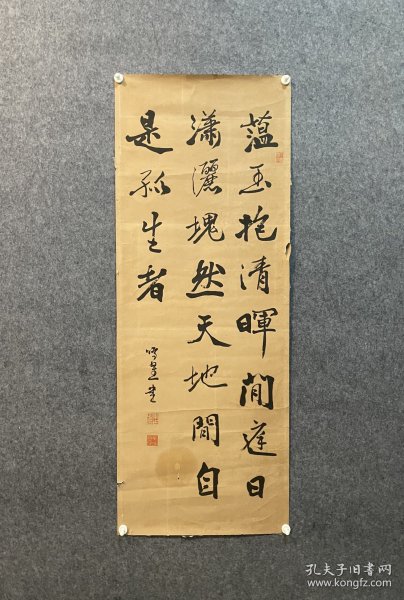 蘊玉抱清暉閒庭日
瀟灑塊然天地間自
是孤生者
孔夫子旧书网
www.kongfz.com